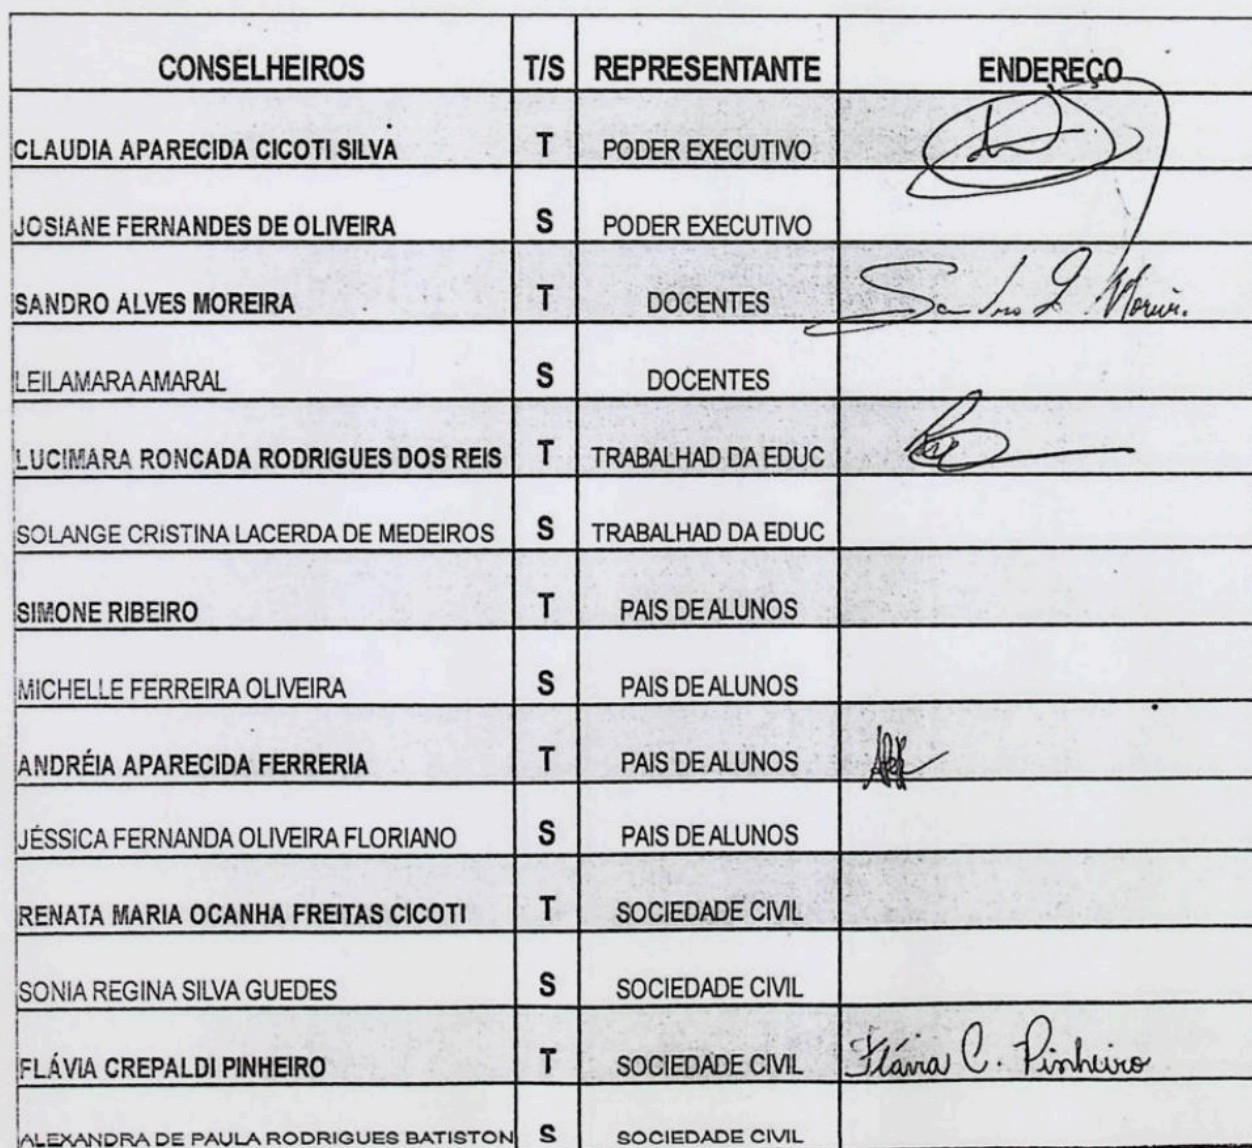 CONSELHEIROS T/S REPRESENTANTE ENDEREÇO
CLAUDIA APARECIDA CICOTI SILVA T PODER EXECUTIVO
JOSIANE FERNANDES DE OLIVEIRA S PODER EXECUTIVO
SANDRO ALVES MOREIRA T DOCENTES Sandro
LEILAMARA AMARAL S DOCENTES
LUCIMARA RONCADA RODRIGUES DOS REIS T TRABALHAD DA EDUC
SOLANGE CRISTINA LACERDA DE MEDEIROS S TRABALHAD DA EDUC
SIMONE RIBEIRO T PAIS DE ALUNOS
MICHELLE FERREIRA OLIVEIRA S PAIS DE ALUNOS
ANDRÉIA APARECIDA FERRERIA T PAIS DE ALUNOS
JÉSSICA FERNANDA OLIVEIRA FLORIANO S PAIS DE ALUNOS
RENATA MARIA OCANHA FREITAS CICOTI T SOCIEDADE CIVIL
SONIA REGINA SILVA GUEDES S SOCIEDADE CIVIL
FLÁVIA CREPALDI PINHEIRO T SOCIEDADE CIVIL Flávia C. Pinheiro
ALEXANDRA DE PAULA RODRIGUES BATISTON S SOCIEDADE CIVIL